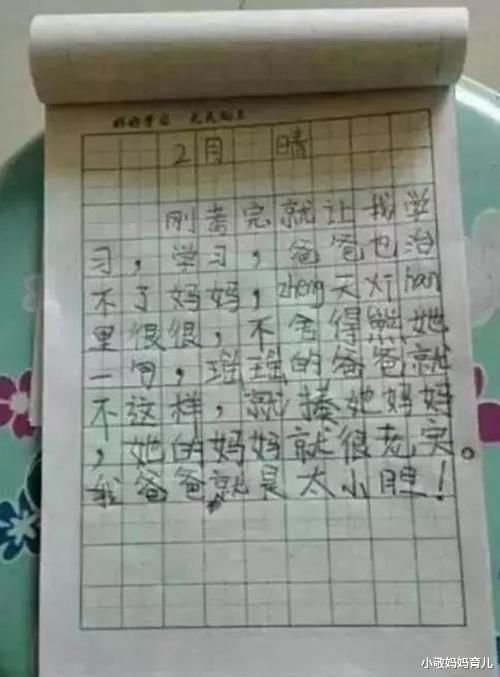 好好学习 天天向上
2月 晴
刚考完就让我学
习,学习,爸爸也治
不了妈妈,zheng天xi han
里很很,不舍得熊她
一句,瑶瑶的爸爸就
不这样,就揍她妈妈
,她的妈妈就很老实。
我爸爸就是太小胆!
小敬妈妈育儿